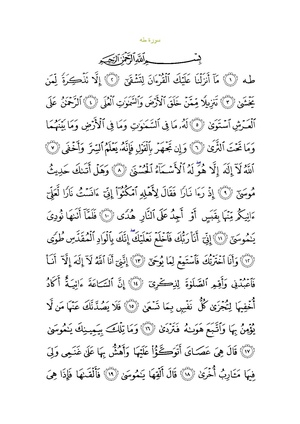 سورة طه
بِسْمِ اللَّهِ الرَّحْمَٰنِ الرَّحِيمِ
طه ١ مَا أَنزَلْنَا عَلَيْكَ الْقُرْءَانَ لِتَشْقَىٰ ٢ إِلَّا تَذْكِرَةً لِّمَن
يَخْشَىٰ ٣ تَنزِيلًا مِّمَّنْ خَلَقَ الْأَرْضَ وَالسَّمَٰوَٰتِ الْعُلَى ٤ الرَّحْمَٰنُ عَلَى
الْعَرْشِ اسْتَوَىٰ ٥ لَهُ مَا فِي السَّمَٰوَٰتِ وَمَا فِي الْأَرْضِ وَمَا بَيْنَهُمَا
وَمَا تَحْتَ الثَّرَىٰ ٦ وَإِن تَجْهَرْ بِالْقَوْلِ فَإِنَّهُ يَعْلَمُ السِّرَّ وَأَخْفَى ٧
اللَّهُ لَا إِلَٰهَ إِلَّا هُوَ لَهُ الْأَسْمَاءُ الْحُسْنَىٰ ٨ وَهَلْ أَتَىٰكَ حَدِيثُ
مُوسَىٰ ٩ إِذْ رَءَا نَارًا فَقَالَ لِأَهْلِهِ امْكُثُوا إِنِّي ءَانَسْتُ نَارًا لَّعَلِّي
ءَاتِيكُم مِّنْهَا بِقَبَسٍ أَوْ أَجِدُ عَلَى النَّارِ هُدًى ١٠ فَلَمَّا أَتَىٰهَا نُودِيَ
يَٰمُوسَىٰ ١١ إِنِّي أَنَا رَبُّكَ فَاخْلَعْ نَعْلَيْكَ إِنَّكَ بِالْوَادِ الْمُقَدَّسِ طُوًى
١٢ وَأَنَا اخْتَرْتُكَ فَاسْتَمِعْ لِمَا يُوحَىٰ ١٣ إِنَّنِي أَنَا اللَّهُ لَا إِلَٰهَ إِلَّا أَنَا
فَاعْبُدْنِي وَأَقِمِ الصَّلَوٰةَ لِذِكْرِي ١٤ إِنَّ السَّاعَةَ ءَاتِيَةٌ أَكَادُ
أُخْفِيهَا لِتُجْزَىٰ كُلُّ نَفْسٍ بِمَا تَسْعَىٰ ١٥ فَلَا يَصُدَّنَّكَ عَنْهَا مَن لَّا
يُؤْمِنُ بِهَا وَاتَّبَعَ هَوَىٰهُ فَتَرْدَىٰ ١٦ وَمَا تِلْكَ بِيَمِينِكَ يَٰمُوسَىٰ
١٧ قَالَ هِيَ عَصَايَ أَتَوَكَّؤُا عَلَيْهَا وَأَهُشُّ بِهَا عَلَىٰ غَنَمِي وَلِيَ
فِيهَا مَـَٔارِبُ أُخْرَىٰ ١٨ قَالَ أَلْقِهَا يَٰمُوسَىٰ ١٩ فَأَلْقَىٰهَا فَإِذَا هِيَ